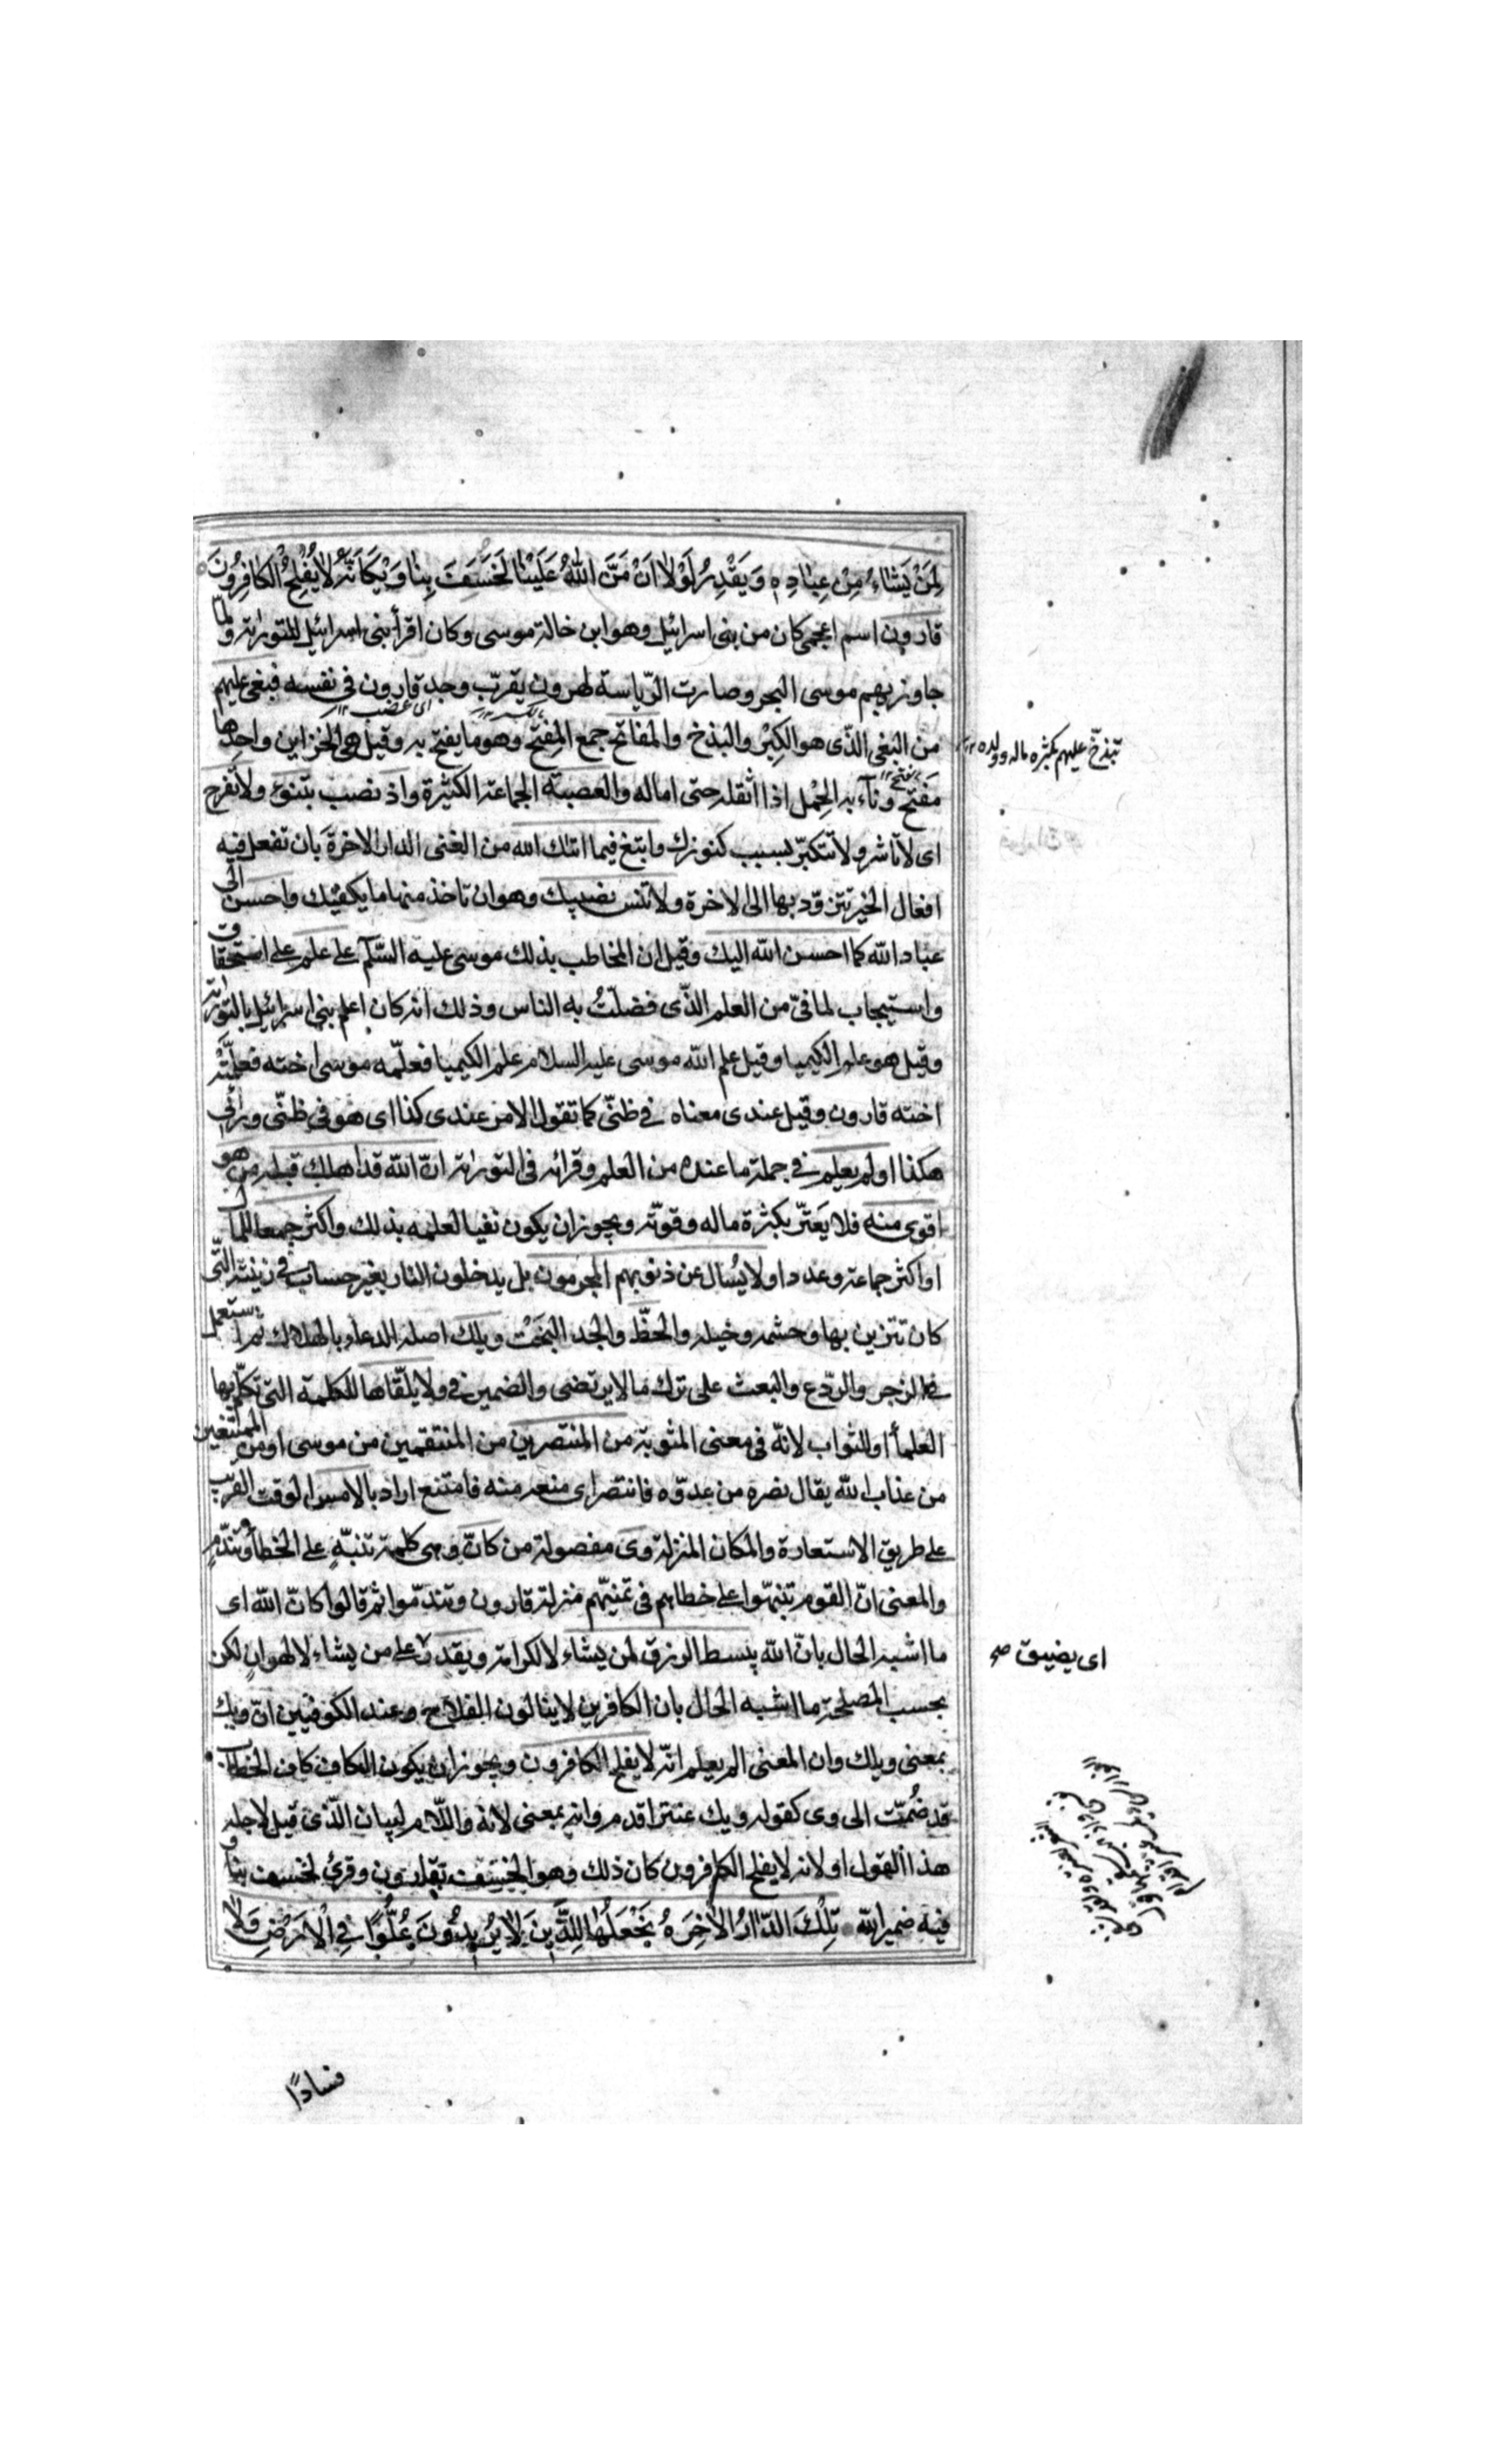 لِمَنْ يَشَاءُ مِنْ عِبَادِهِ وَيَقْدِرُ لَوْلَا اَنْ مَنَّ اللّٰهُ عَلَيْنَا لَخَسَفَ بِنَا وَيْكَاَنَّهُ لَا يُفْلِحُ الْكَافِرُونَ
قارون اسم اعجمى كان من بنى اسرائيل وهو ابن خالة موسى وكان اقرأ بنى اسرائيل للتوراية ولما
جاوز بهم موسى البحر وصارت الرّياسة لهرون يقرّب وجد قارون فى نفسه فبغى عليهم
اى غضب
من البغى الذّى هو الكِبْر والبذخ والمفاتح جمع المِفتَح وهو ما يفتح به وقيل هى الخزاين واحدها
تبذخ عليهم بكثره ماله وولده
مَفتح وناء به الحِمْل اذا اثقله حتى اماله والعصبة الجماعة الكثيرة واذ نصب بتنوء ولا تفرح
اى لا تاشر ولا تتكبّر بسبب كنوزك وابتغ فيما اتٰك الله من الغنى الدار الاخرة بان تفعل فيه
افعال الخير تتزوّد بها الى الاخرة ولا تنس نصيبك وهو ان تاخذ منها ما يكفيك واحسن الى
عباد الله كما احسن الله اليك وقيل ان المخاطب بذلك موسى عليه السّلم على علم على استحقاق
واستيجاب لما فىّ من العلم الذّى فضلتُ به الناس وذلك انه كان اعلم بنى اسرائيل بالتوراية
وقيل هو علم الكيميا وقيل علم الله موسى عليه السلام علم الكيميا فعلّمه موسى اخته فعلّمته
اخته قارون وقيل عندى معناه فى ظنّى كما تقول الامر عندى كذا اى هو فى ظنّى ورأيى
هكذا اولم يعلم فى جملة ما عنده من العلم وقرائه فى التوراية انّ الله قد اهلك قبله من هو
اقوى منه فلا يَغترّ بكثرة ماله وقوّته ويجوز ان يكون نفيا لعلمه بذلك واكثر جمعا للمال
او اكثر جماعة وعددا ولا يُسال عن ذنوبهم المجرمون بل يدخلون النار بغير حساب فى زينته التّى
كان تتزين بها وحشمه وخيله والحظّ والجد البَخَتْ ويلك اصله الدعاء بالهلاك ثم استعمل
فى الزجر والرّدع والبعث على ترك ما لا يرتضى والضمير فى ولا يلقّاها للكلمة التى تكلّم بها
العلمأ او للثواب لانّه فى معنى المثوبة من المنتصرين من المنتقمين من موسى او من الممتنعين
من عذاب الله يقال نصره من عدوّه فانتصر اى منعه منه فامتنع اراد بالامس الوقت القريب
على طريق الاستعارة والمكان المنزلة وى مفصولة من كانّ وهى كلمة تنبّهٍ على الخطأ وتندّمٍ
والمعنى انّ القوم تنبّهوا على خطاهم فى تمنيّهم منزلة قارون وتندّموا ثم قالوا كانّ الله اى
ما اشبه الحال بانّ الله يبسط الرزق لمن يشاء لا لكرامة ويقدر على من يشاء لا لهوانٍ لكن
اى يضيق صح
بحسب المصلحة ما اشبه الحال بان الكافرين لا ينالون الفلاح وعند الكوفيين انّ ويك
بمعنى ويلك وان المعنى الم يعلم انّه لا يفلح الكافرون ويجوز ان يكون الكاف كاف الخطاب
قد ضُمّت الى وى كقوله ويك عنتر اقدم وانه بمعنى لانه واللام لبيان الذّى قيل لاجله
هذا القول او لانه لا يفلح الكافرون كان ذلك وهو الخسف بقارون وقرئ لخسف بنا و
فيه ضمير الله تِلْكَ الدّارُ الْاٰخِرَةُ نَجْعَلُهَا لِلَّذِينَ لَا يُرِيدُونَ عُلُوًّا فِى الْاَرْضِ وَلَا
فسادًا